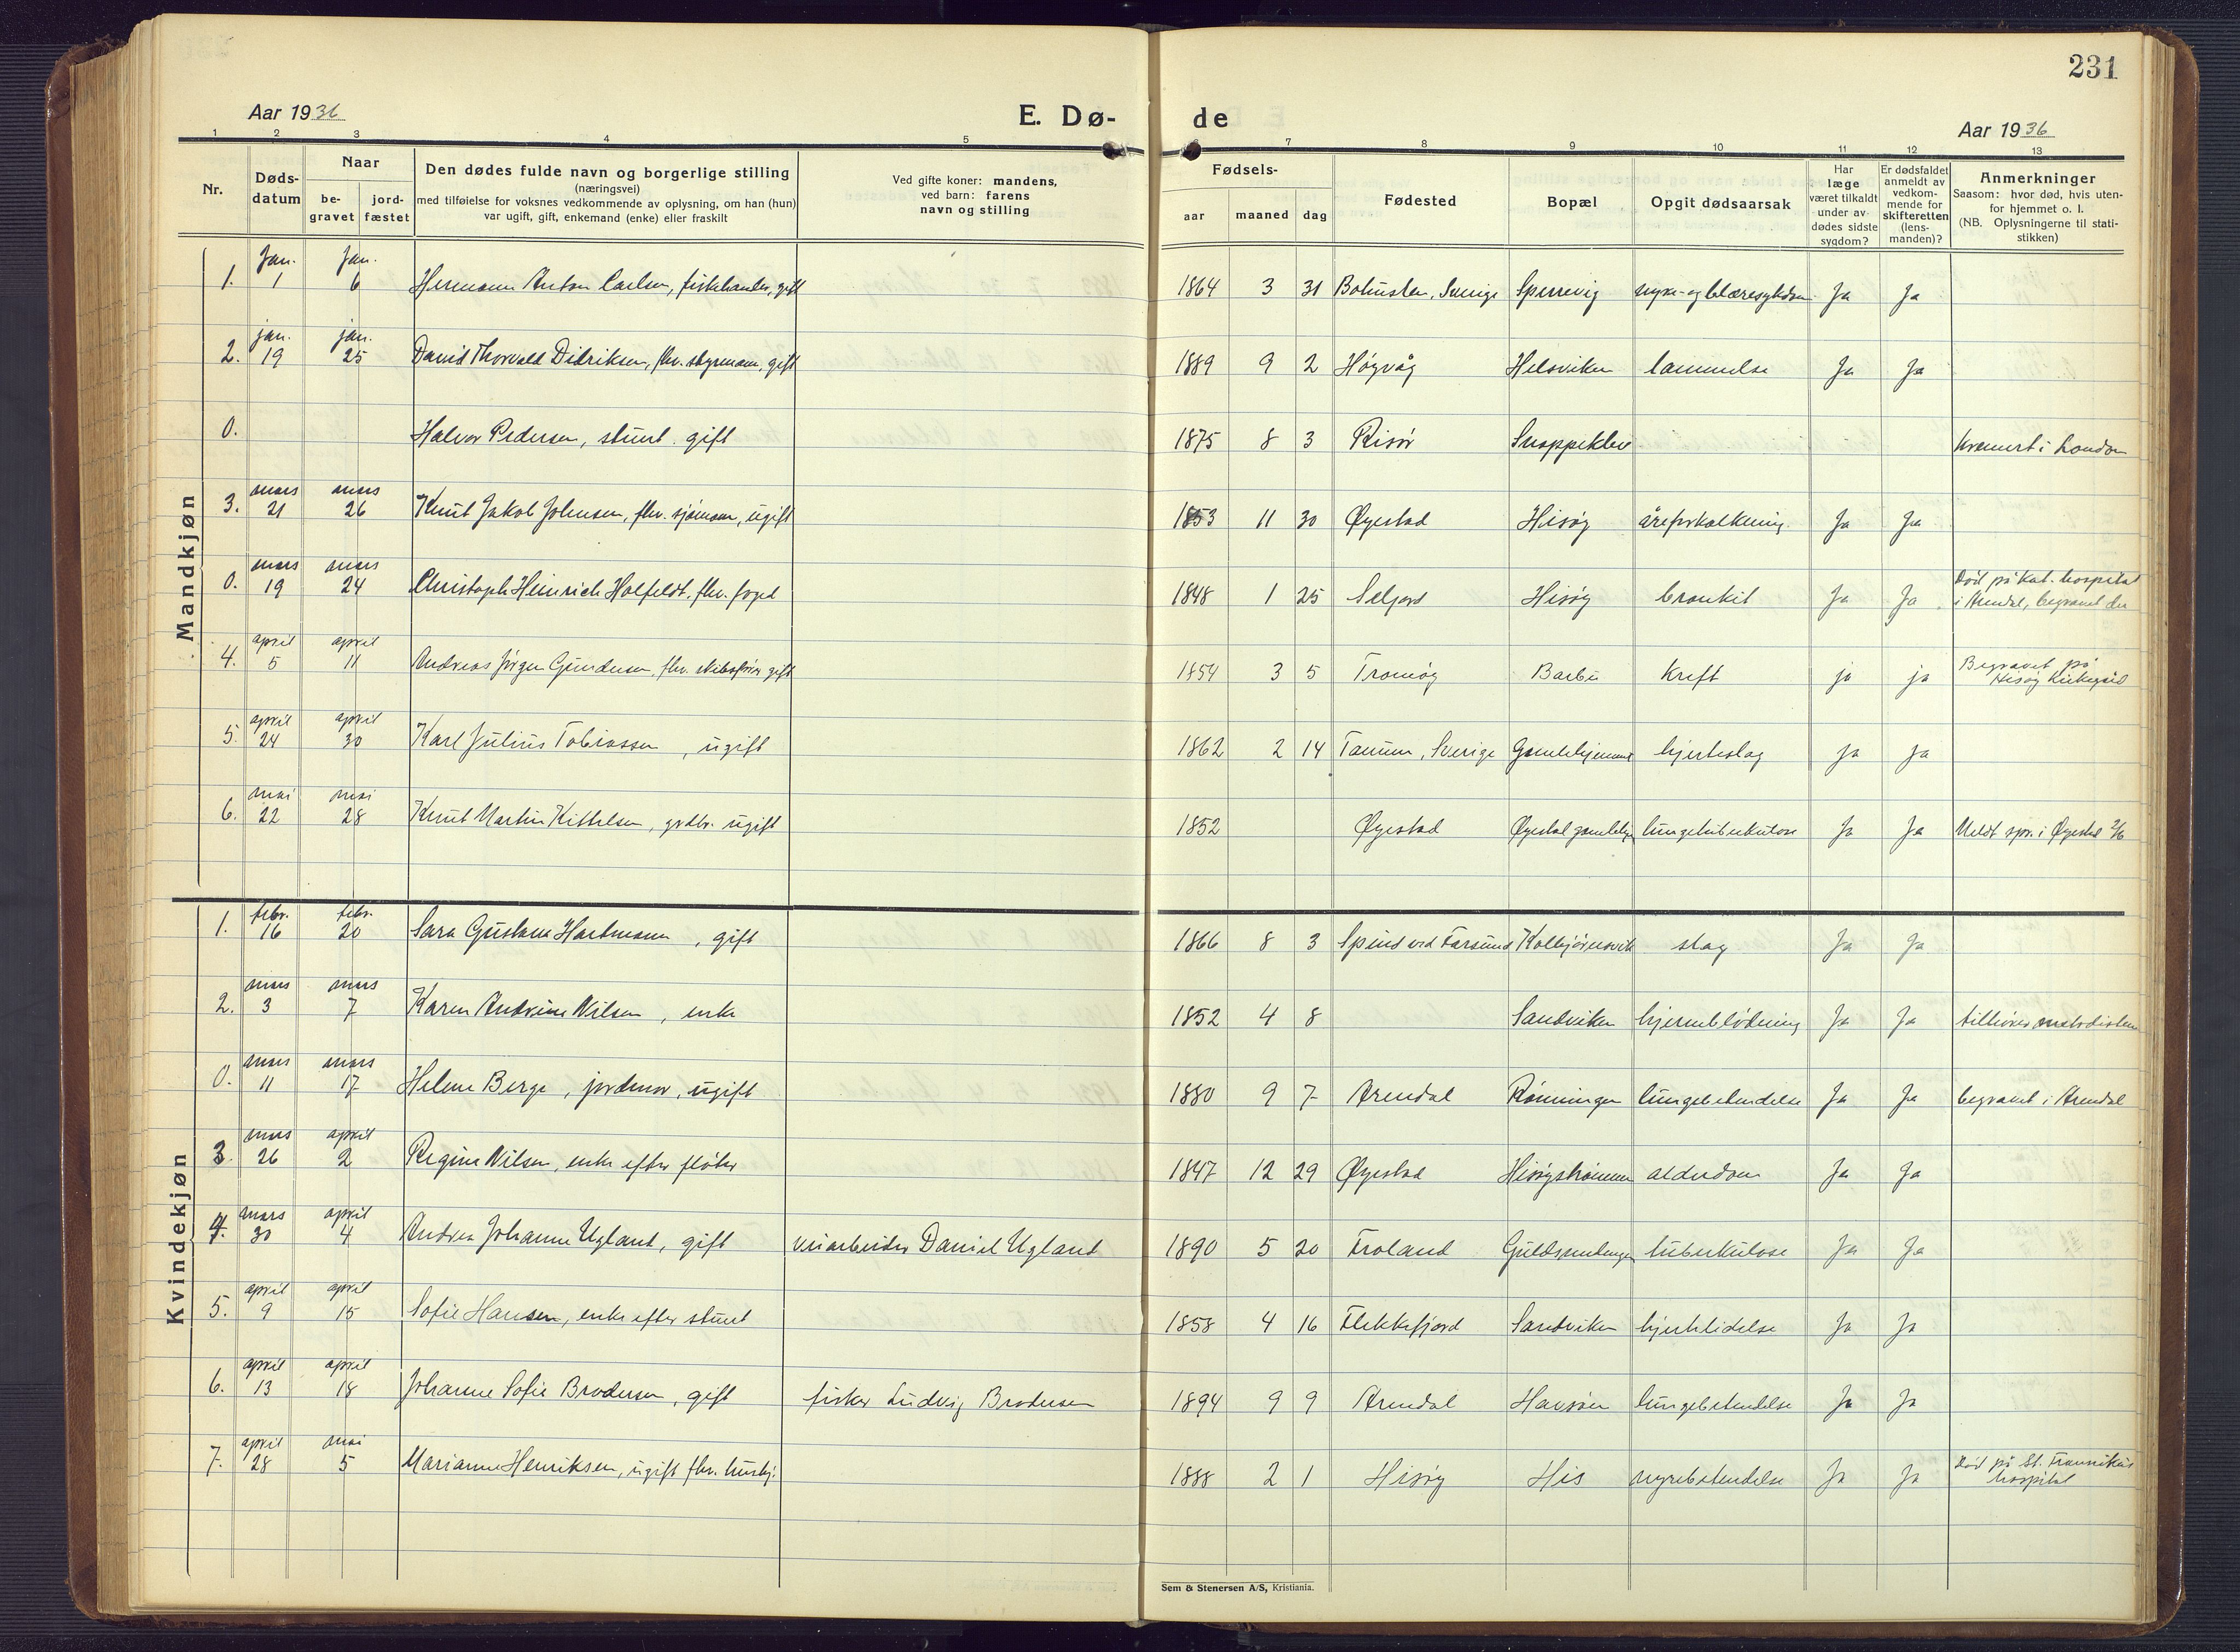 231
Aar 1936
E. Dø-
de
Aar 1936
1 2 3 4 5 6 7 8 9 10 11 12 13
Nr.
Døds-
datum
Naar
be-
gravet
jord-
fæstet
Den dødes fulde navn og borgerlige stilling
(næringsvei)
med tilføielse for voksnes vedkommende av oplysning, om han (hun)
var ugift, gift, enkemand (enke) eller fraskilt
Ved gifte koner: mandens,
ved barn: farens
navn og stilling
Fødsels-
aar maaned dag
Fødested
Bopæl
Opgit dødsaarsak
Har
læge
været tilkaldt
under av-
dødes sidste
sygdom?
Er dødsfaldet
anmeldt av
vedkom-
mende for
skifteretten
(lens-
manden)?
Anmerkninger
Saasom: hvor død, hvis uten-
for hjemmet o. l.
(NB. Oplysningerne til stati-
stikken)
Mandkjøn
Jan. Jan.
1. 1 6 Hermann Anton Carlsen, fiskehandler, gift 1864 3 31 Bohuslen, Sverige Sperrevig nyre- og blæresykdom Ja Ja
jan. jan.
2. 19 25 David Thorvald Didriksen, fhv. styrmann, gift 1889 9 2 Høgvåg Helsviken lammelse Ja Ja
0. Halvor Pedersen, stuert. gift 1875 8 3 Risør Snoppeklev kremert i London
mars mars
3. 21 26 Knut Jakob Johnsen, fhv. sjømann, ugift 1853 11 30 Øyestad Hisøy åreforkalkning. Ja Ja
mars mars
0. 19 24 Christoph Heinrich Holfeldt, fhv. foged 1848 1 25 Seljord Hisøy bronkit Ja Ja Død på Kat. hospital
i Arendal, begravet der
april april
4. 5 11 Andreas Jørgen Gundersen, fhv. skibsfører gift 1854 3 5 Tromøy Barbu Kreft ja ja Begravet på
Hisøy Kirkegård
april april
5. 24 30 Karl Julius Tobiassen, ugift 1862 2 14 Tanum, Sverige Gamlehjemmet hjerteslag ja ja
mai mai
6. 22 28 Knut Martin Kittelsen, grdbr. ugift 1852 Øyestad Øyestad gamlehj. lungetuberkulose Ja Ja Meldt spr. i Øyestad 2/6
Kvindekjøn
febr. febr.
1. 16 20 Sara Gustava Hartmann, gift 1866 8 3 Spind ved Farsund Kolbjørnsvik slag Ja Ja
mars mars
2. 3 7 Karen Andrine Nilsen, enke 1852 4 8 Sandviken hjerneblødning Ja Ja tilhører metodisten
mars mars
0. 11 17 Helene Berge, jordmor, ugift 1880 9 7 Arendal Rønningen lungebetendelse Ja Ja begravet i Arendal
mars april
3. 26 2 Regine Nilsen, enke efter fløter 1847 12 29 Øyestad Hisøystrømmen alderdom Ja Ja
mars april
4. 30 4 Andrea Johanne Ugland, gift veiarbeider Daniel Ugland 1890 5 20 Froland Guldsmedengen tuberkulose Ja Ja
april april
5. 9 15 Sofie Hansen, enke efter stuert 1858 4 16 Flekkefjord Sandviken hjertelidelse Ja Ja
april april
6. 13 18 Johanne Sofie Brodersen, gift fisker Ludvig Brodersen 1894 9 9 Arendal Havsøen lungebetendelse Ja Ja
april mai
7. 28 5 Marianne Henriksen, ugift fhv. hushj. 1888 2 1 Hisøy His nyrebetendelse Ja Ja Død på St. Franciskus
hospital
Sem & Stenersen A/S, Kristiania.